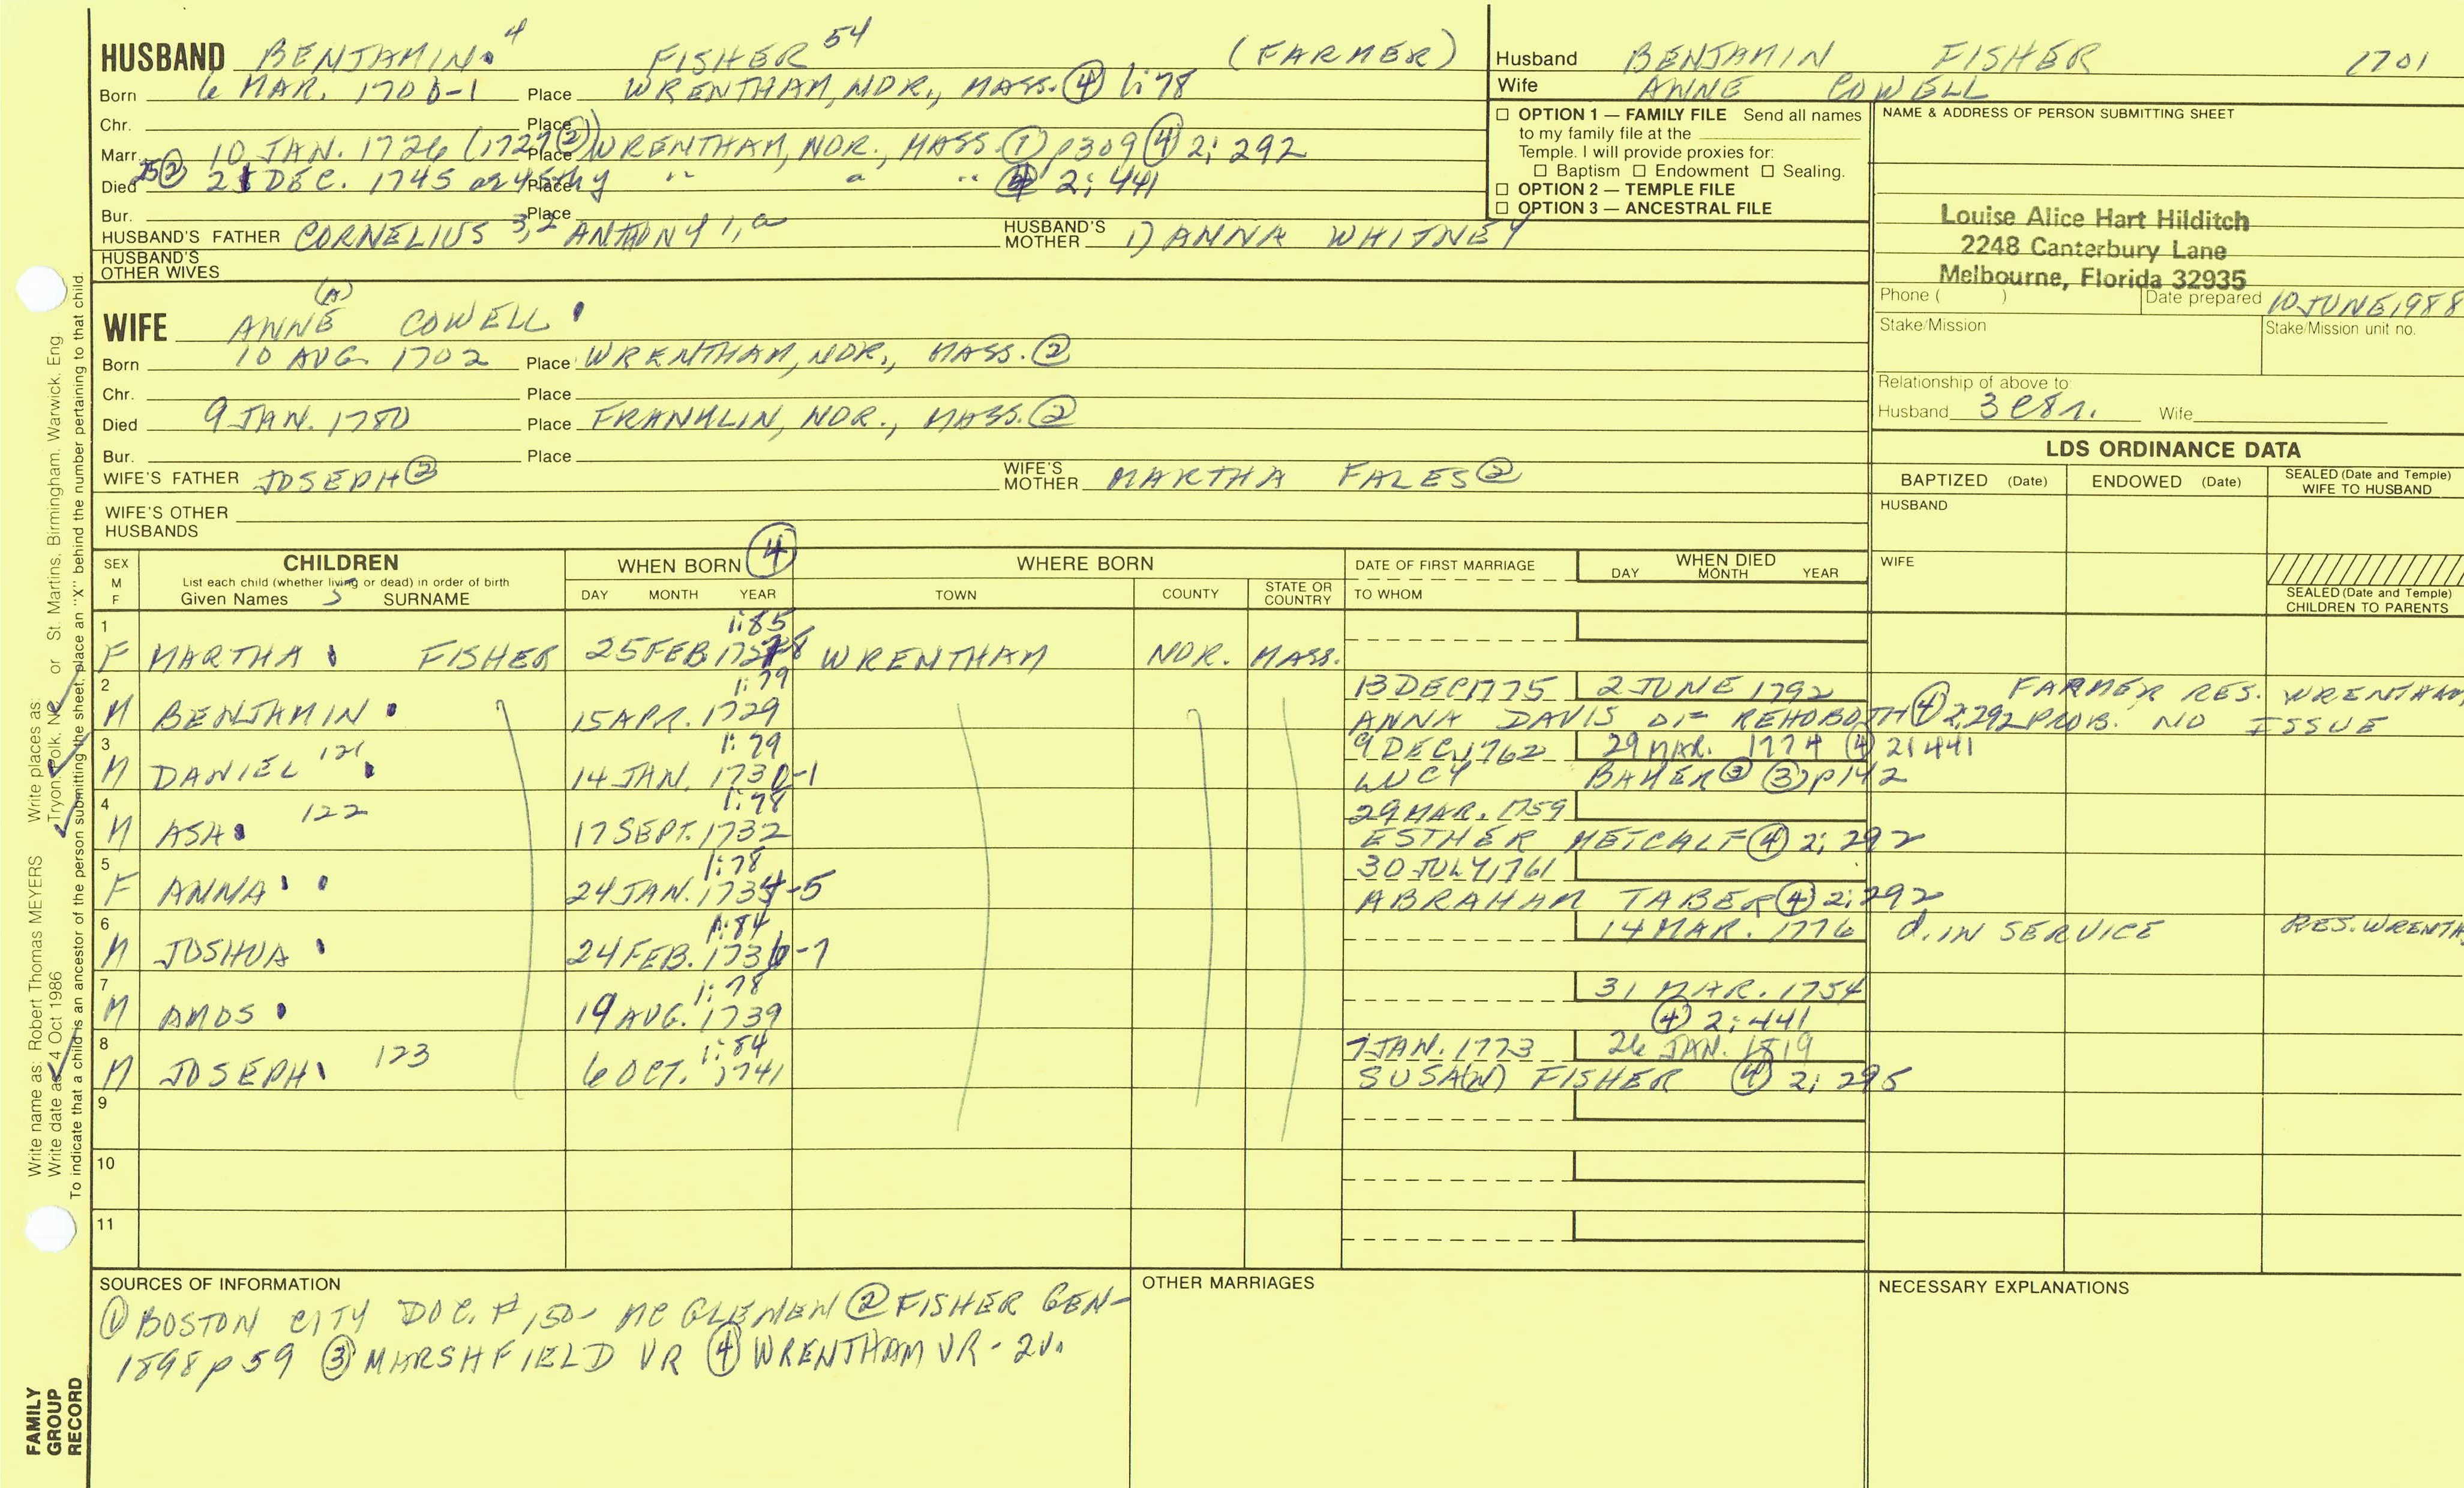 HUSBAND BENJAMIN 4 FISHER 54 (FARMER)
Born 6 MAR. 1700-1 Place WRENTHAM, NOR., MASS. ④ 1:78
Chr. Place
Marr. 10 JAN. 1726 (1727 ②) Place WRENTHAM, NOR., MASS. ① p309 ④ 2:292
Died 25 ② 21 DEC. 1745 as 45thy Place " " " ④ 2:441
Bur. Place
HUSBAND'S FATHER CORNELIUS 3,2 ANTHONY 1,a HUSBAND'S MOTHER 1) ANNA WHITNEY
HUSBAND'S OTHER WIVES
(A)
WIFE ANNE COWELL
Born 10 AUG. 1702 Place WRENTHAM, NOR., MASS. ②
Chr. Place
Died 9 JAN. 1780 Place FRANKLIN, NOR., MASS. ②
Bur. Place
WIFE'S FATHER JOSEPH ② WIFE'S MOTHER MARTHA FALES ②
WIFE'S OTHER HUSBANDS
Husband BENJAMIN FISHER 1701
Wife ANNE COWELL
☐ OPTION 1 — FAMILY FILE Send all names
to my family file at the
Temple. I will provide proxies for:
☐ Baptism ☐ Endowment ☐ Sealing.
☐ OPTION 2 — TEMPLE FILE
☐ OPTION 3 — ANCESTRAL FILE
NAME & ADDRESS OF PERSON SUBMITTING SHEET
Louise Alice Hart Hilditch
2248 Canterbury Lane
Melbourne, Florida 32935
Phone ( ) Date prepared 10 JUNE 1988
Stake/Mission Stake/Mission unit no.
Relationship of above to:
Husband 3 c8r. Wife
LDS ORDINANCE DATA
BAPTIZED (Date) ENDOWED (Date) SEALED (Date and Temple) WIFE TO HUSBAND
HUSBAND
WIFE
SEALED (Date and Temple) CHILDREN TO PARENTS
SEX M F CHILDREN WHEN BORN ④ WHERE BORN DATE OF FIRST MARRIAGE WHEN DIED
List each child (whether living or dead) in order of birth
Given Names 5 SURNAME DAY MONTH YEAR TOWN COUNTY STATE OR COUNTRY TO WHOM DAY MONTH YEAR
1 1:85
F MARTHA FISHER 25 FEB 1727-8 WRENTHAM NOR. MASS.
2 1:79 13 DEC 1775 2 JUNE 1792 FARMER RES. WRENTHAM,
M BENJAMIN 15 APR. 1729 ANNA DAVIS OF REHOBOTH ④ 2,292 PROB. NO ISSUE
3 1:79 9 DEC. 1762 29 MAR. 1774 ④ 2:441
M DANIEL 121 14 JAN. 1730-1 LUCY BAKER ③ ③ p142
4 1:78 29 MAR. 1759
M ASA 122 17 SEPT. 1732 ESTHER METCALF ④ 2:292
5 1:78 30 JULY 1761
F ANNA 24 JAN. 1734-5 ABRAHAM TABER ④ 2:292
6 1:84 14 MAR. 1776 d. IN SERVICE RES. WRENTH
M JOSHUA 24 FEB. 1736-7
7 1:78 31 MAR. 1754
M AMOS 19 AUG. 1739 ④ 2:441
8 1:84 7 JAN. 1773 26 JAN. 1819
M JOSEPH 123 6 OCT. 1741 SUSA(N) FISHER ④ 2:295
9
10
11
SOURCES OF INFORMATION
① BOSTON CITY DOC. # 150- MC GLENEN ② FISHER GEN-
1898 p 59 ③ MARSHFIELD VR ④ WRENTHAM VR - 2v.
OTHER MARRIAGES
NECESSARY EXPLANATIONS
Write name as: Robert Thomas MEYERS Write places as:
Write date as: 4 Oct 1986 Tryon, Polk, NC or St. Martins, Birmingham, Warwick, Eng.
To indicate that a child is an ancestor of the person submitting the sheet, place an "X" behind the number pertaining to that child.
FAMILY
GROUP
RECORD